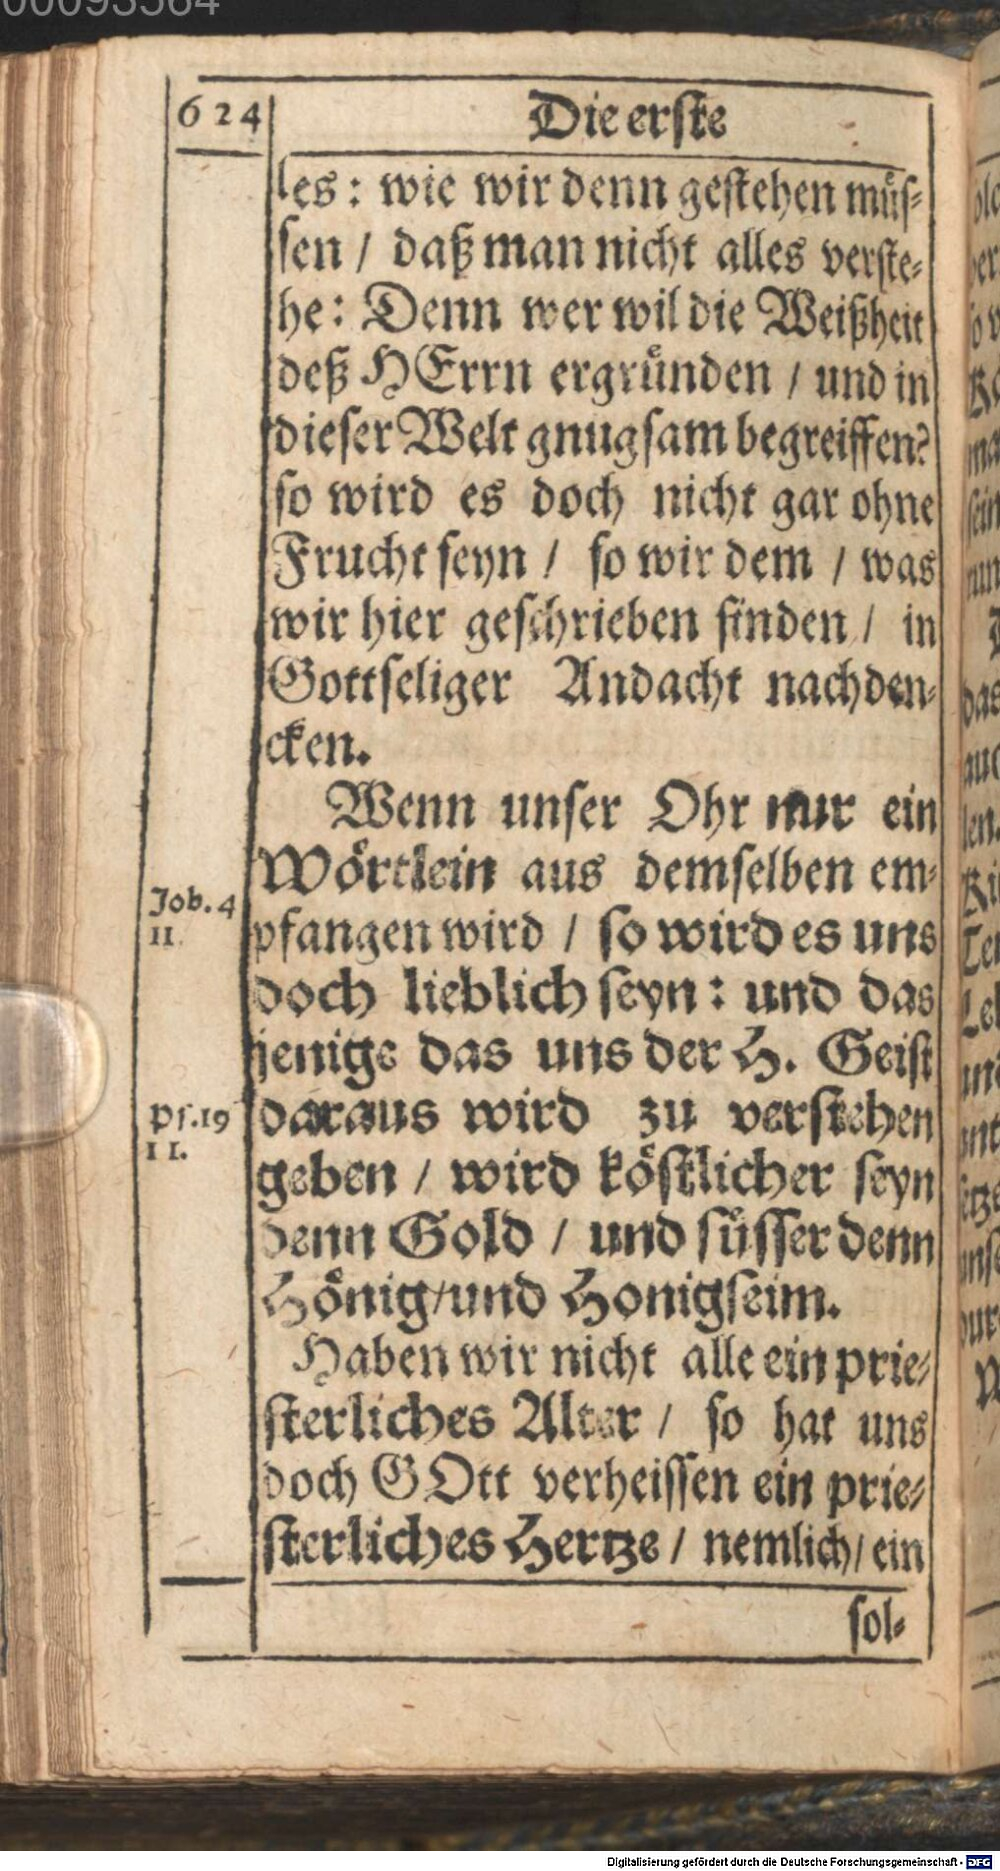 00093564
624
Die erste
les: wie wir denn gestehen müs-
sen / daß man nicht alles verste-
he: Denn wer wil die Weißheit
deß HErrn ergründen / und in
dieser Welt gnugsam begreiffen?
so wird es doch nicht gar ohne
Frucht seyn / so wir dem / was
wir hier geschrieben finden / in
Gottseliger Andacht nachden-
cken.
Wenn unser Ohr nur ein
Wörtlein aus demselben em-
Job. 4
11.
pfangen wird / so wird es uns
doch lieblich seyn: und das
jenige das uns der H. Geist
Ps. 19
11.
daraus wird zu verstehen
geben / wird köstlicher seyn
denn Gold / und süsser denn
Hönig/und Honigseim.
Haben wir nicht alle ein prie-
sterliches Alter / so hat uns
doch GOtt verheissen ein prie-
sterliches Hertze / nemlich/ ein
sol-
Digitalisierung gefördert durch die Deutsche Forschungsgemeinschaft - DFG